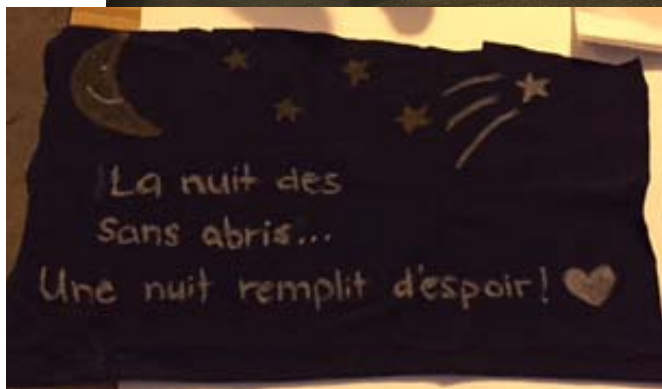 La nuit des
sans abris...
Une nuit remplit d'espoir!